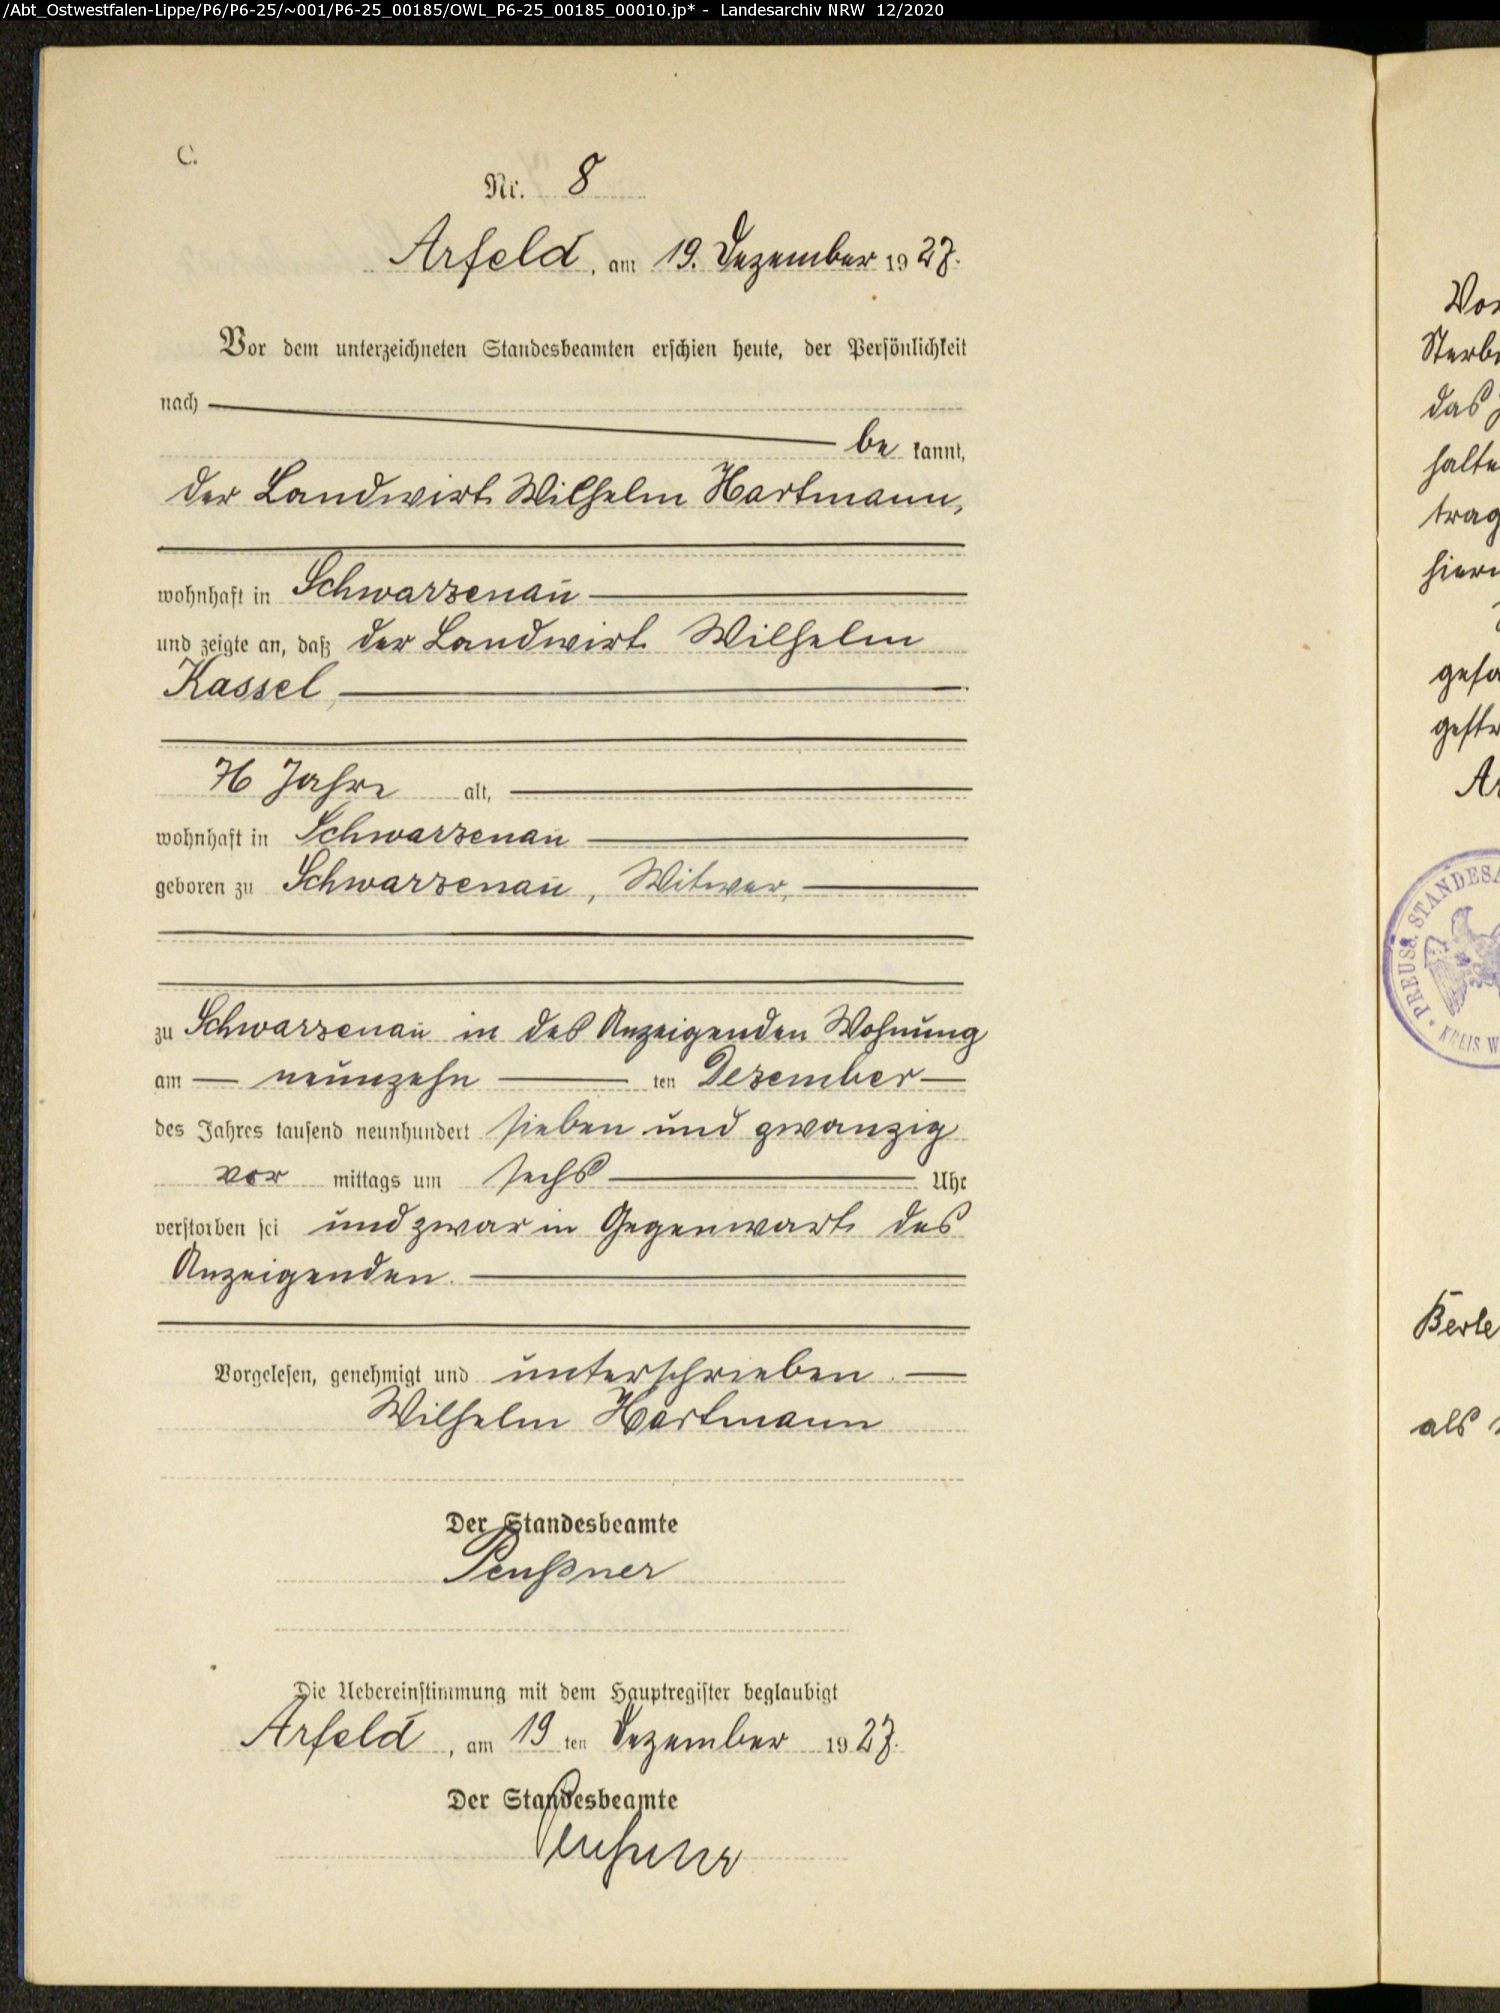 /Abt_Ostwestfalen-Lippe/P6/P6-25/~001/P6-25_00185/OWL_P6-25_00185_00010.jp* - Landesarchiv NRW 12/2020
C.
Nr. 8
Arfeld, am 19. Dezember 1927.
Vor dem unterzeichneten Standesbeamten erschien heute, der Persönlichkeit
nach
be kannt,
der Landwirt Wilhelm Hartmann,
wohnhaft in Schwarzenau
und zeigte an, daß der Landwirt Wilhelm
Kassel,
76 Jahre alt,
wohnhaft in Schwarzenau
geboren zu Schwarzenau, Witwer,
zu Schwarzenau in des Anzeigenden Wohnung
am — neunzehn — ten Dezember —
des Jahres tausend neunhundert sieben und zwanzig
vor mittags um sechs Uhr
verstorben sei und zwar in Gegenwart des
Anzeigenden.
Vorgelesen, genehmigt und unterschrieben. —
Wilhelm Hartmann
Der Standesbeamte
Peußner
Die Uebereinstimmung mit dem Hauptregister beglaubigt
Arfeld, am 19 ten Dezember 1927.
Der Standesbeamte
Peußner
Vor
Sterbe
das
halte
trag
hier
gefa
gestr
Ar
PREUSS. STANDESA
KREIS W
Berle
als